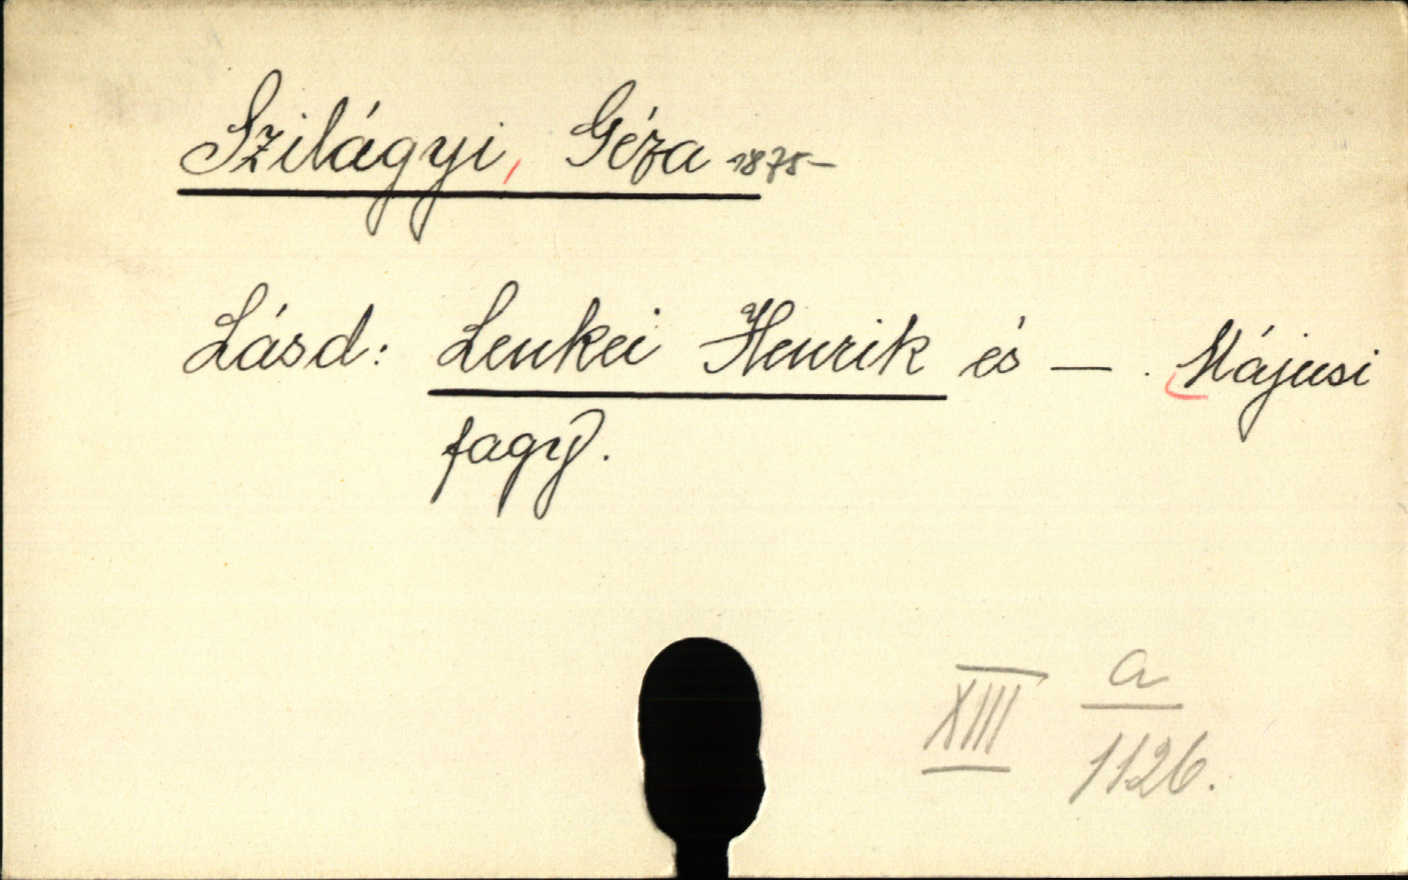 Szilágyi, Géza 1875–
Lásd: Lenkei Henrik és — . Májusi
fagy.
XIII a
1126.